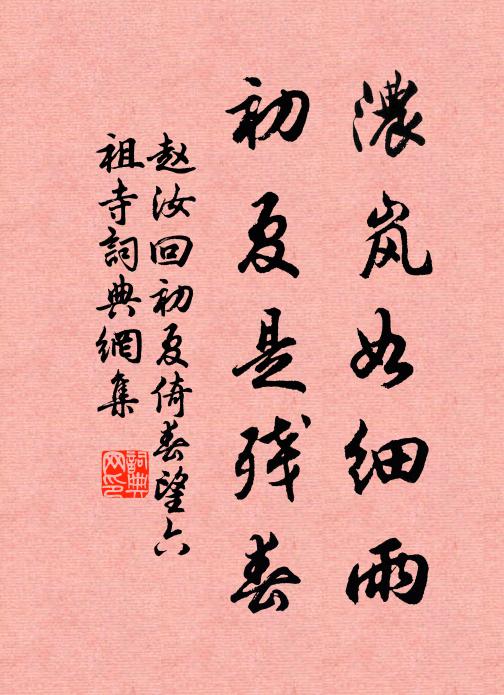 濃岚如细雨
初夏是残春
赵汝回初夏倚春望六
祖寺詞典網集
詞典
网印